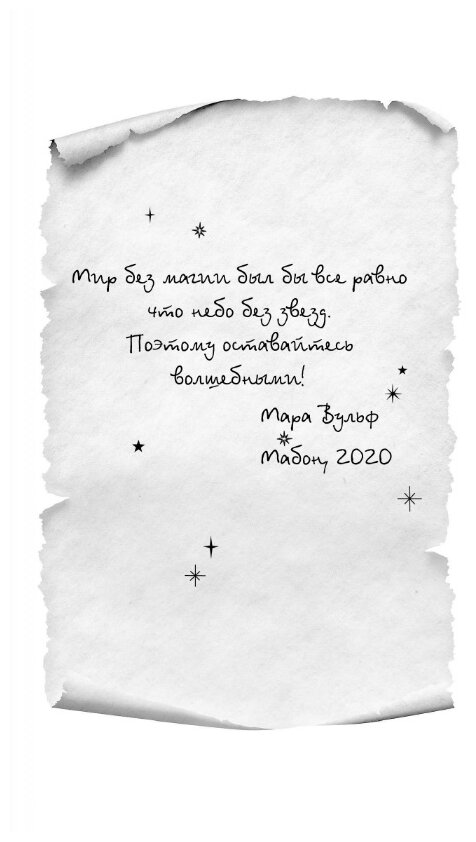 Мир без магии был бы все равно
что небо без звезд.
Поэтому оставайтесь
волшебными!
Мара Вульф
Мабон, 2020